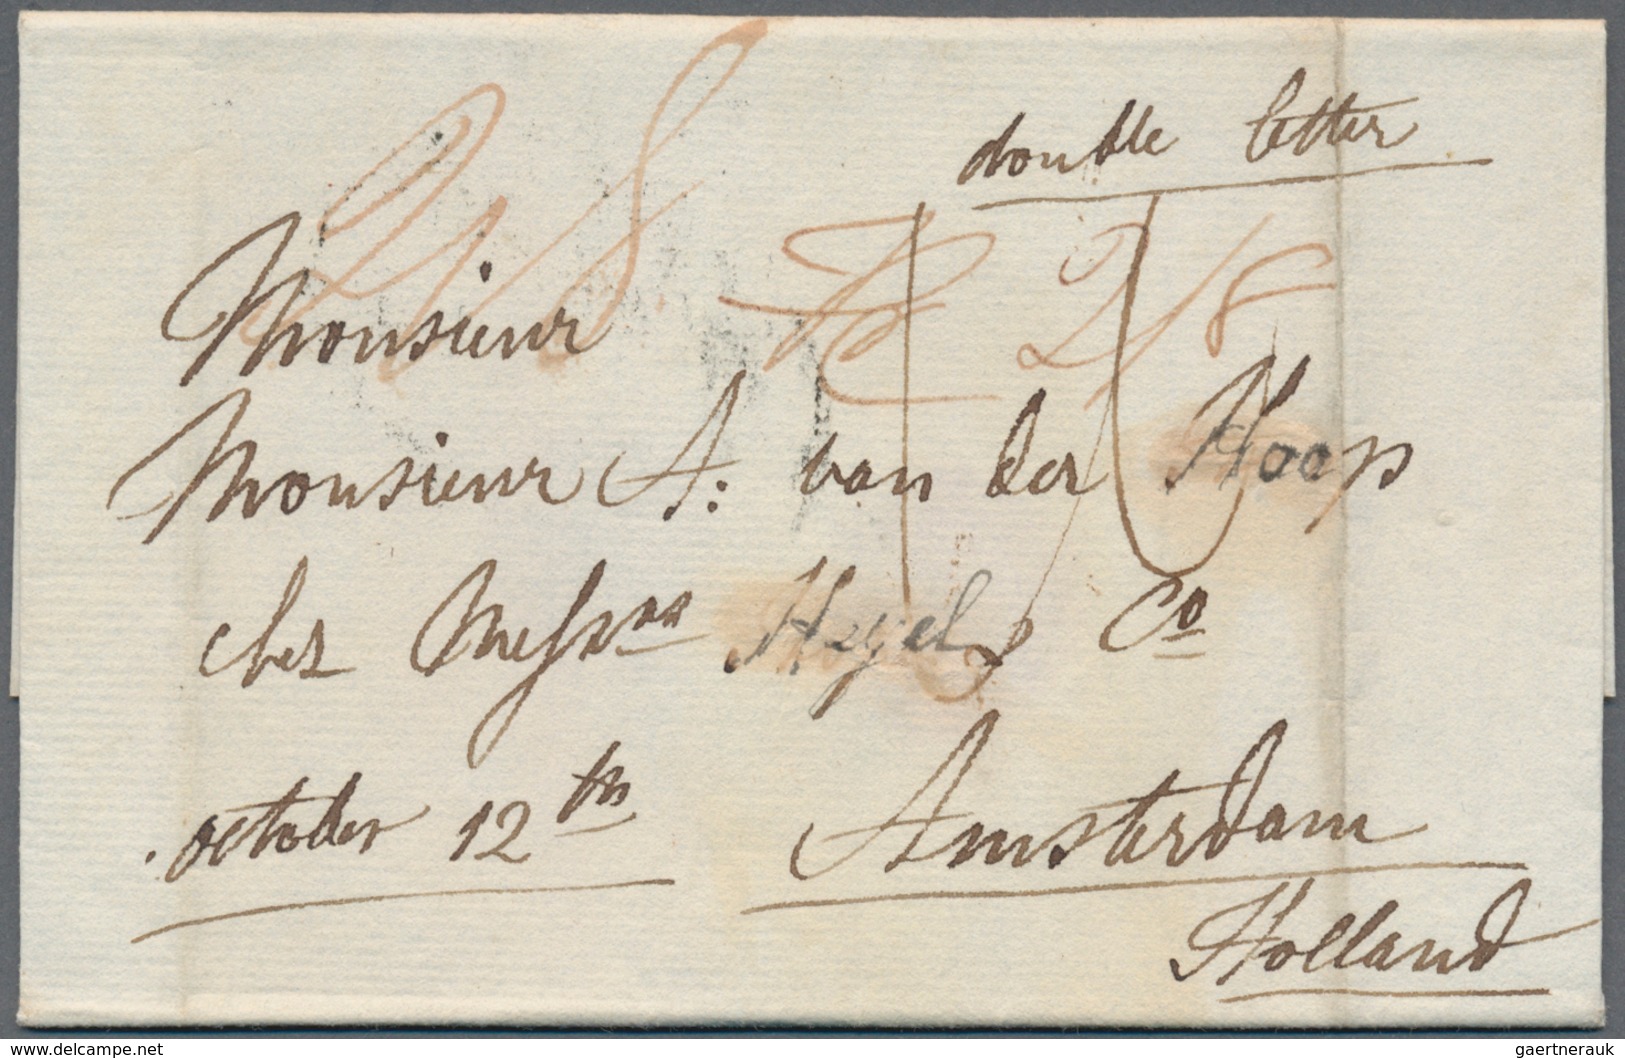 double letter
2/8
2/8
Monsieur
Monsieur A: van der Hoop
chez Messrs Hegel & Co
october 12th
Amsterdam
Holland
www.delcampe.net
gaertnerauk